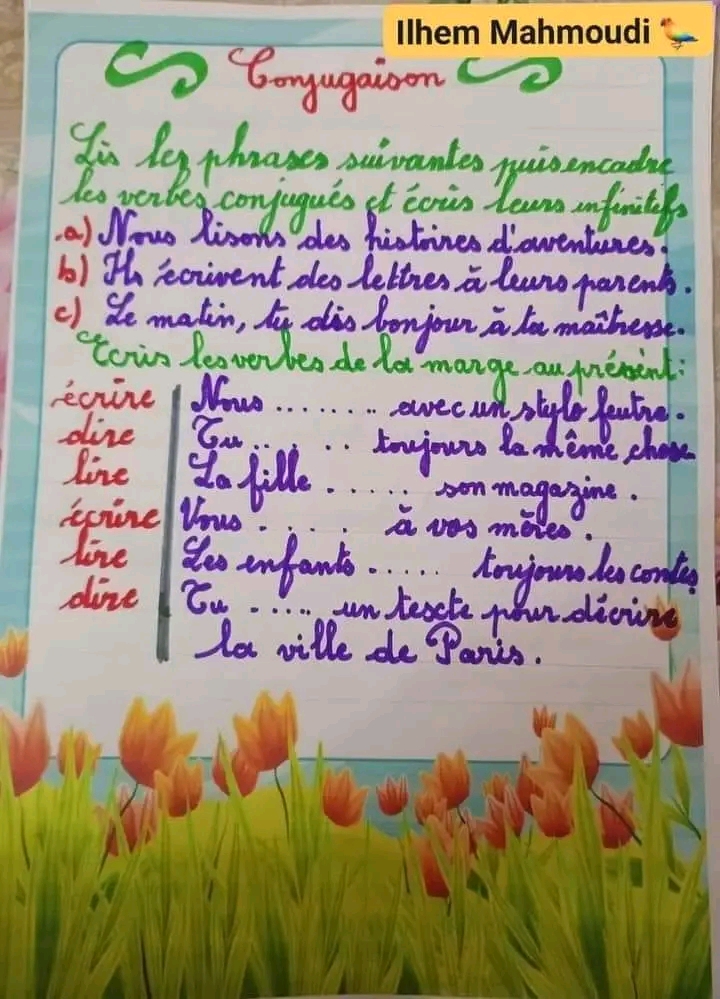 Ilhem Mahmoudi
Conjugaison
Lis les phrases suivantes puis encadre
les verbes conjugués et écris leurs infinitifs
a) Nous lisons des histoires d'aventures.
b) Ils écrivent des lettres à leurs parents.
c) Le matin, tu dis bonjour à ta maîtresse.
Ecris les verbes de la marge au présent:
écrire Nous ........ avec un stylo feutre.
dire Tu ..... toujours la même chose
lire La fille ..... son magazine.
écrire Vous .... à vos mères.
lire Les enfants ..... toujours les contes
dire Tu ..... un texte pour décrire
la ville de Paris.